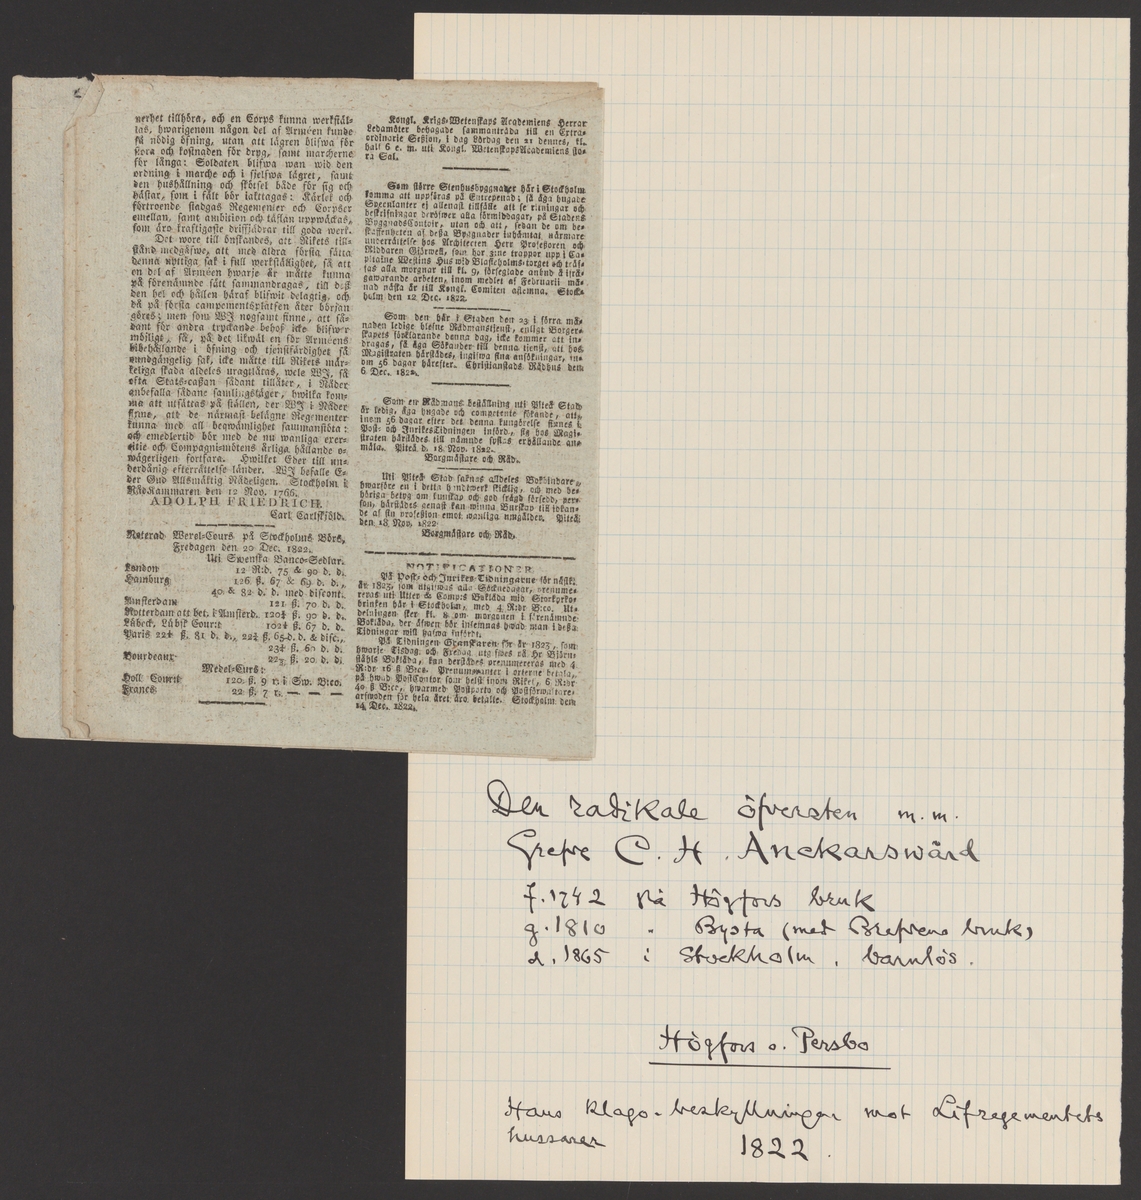 nerhet tillhöra, och en Corps kunna werkstäl-
las, hwarigenom någon del af Arméen kunde
få nödig öfning, utan att lägren blifwa för
stora och kostnaden för dryg, samt marcherne
för långa: Soldaten blifwa wan wid den
ordning i marche och i sjelfwa lägret, samt
den hushållning och skötsel både för sig och
hästar, som i fält bör iakttagas: Kärlek och
förtroende stadgas Regementer och Corpser
emellan, samt ambition och täflan uppwäckas,
som äro kraftigaste driffjädrar till goda werk.
Det wore till önskandes, att Rikets till-
stånd medgåfwe, att med aldra första sätta
denna nyttiga sak i full werkställighet, så att
en del af Arméen hwarje år måtte kunna
på förenämnde sätt sammandragas, till dess
den hel och hållen häraf blifwit delagtig, och
då på första campementsplatsen åter början
göres; men som WJ nogsamt finne, att så-
dant för andra tryckande behof icke blifwer
möjligt, så, på det likwäl en för Arméens
bibehållande i öfning och tjenstfärdighet så
oundgängelig sak, icke måtte till Rikets mär-
keliga skada aldeles uraktlåtas, wele WJ, så
ofta Stats-cassan sådant tillåter, i Nåder
anbefalla sådane samlingsläger, hwilka kom-
ma att utsättas på ställen, der WJ i Nåder
finne, att de närmast belägne Regementer
kunna med all beqwämlighet sammanstöta:
och emedlertid bör med de nu wanliga exer-
citie och Compagni-mötens årliga hållande o-
wägerligen fortfara. Hwilket Eder till un-
derdånig efterrättelse länder. WJ befalle E-
der Gud Allsmäktig Nådeligen. Stockholm i
RådKammaren den 12 Nov. 1766.
ADOLPH FRIEDRICH.
Carl Carlskjöld.
Noterad Wexel-Cours på Stockholms Börs,
Fredagen den 20 Dec. 1822.
Uti Swenska Banco-Sedlar.
London 12 R:d. 75 & 90 d. d.
Hamburg 126 ß. 67 & 69 d. d.,
40 & 82 d. d. med discont.
Amsterdam 121 ß. 70 d. d.
Rotterdam att bet. i Amsterd. 120¼ ß. 90 d. d.
Lübeck, Lübsk Cour:t 102¼ ß. 67 d. d.
Paris 22¼ ß. 81 d. d., 22¾ ß. 65 d. d. & disc.,
23¼ ß. 60 d. d.
Bourdeaux 22¾ ß. 20 d. d.
Medel-Curs:
Holl Courit 120 ß. 9 r. i Sw. B:co.
Francs 22 ß. 7 r. — — —
Kongl. Krigs-Wetenskaps Academiens Herrar
Ledamöter behagade sammanträda till en Extra-
ordinarie Session, i dag Lördag den 21 dennes, kl.
half 6 e. m. uti Kongl. WetenskapsAcademiens sto-
ra Sal.
Som större Stenhusbyggnader här i Stockholm
komma att uppföras på Entreprenad; så äga hugade
Speculanter ej allenast tillfälle att se ritningar och
beskrifningar deröfwer alla förmiddagar, på Stadens
ByggnadsContoir, utan och att, sedan de om be-
skaffenheten af dessa Byggnader inhämtat närmare
underrättelse hos Architecten Herr Professoren och
Riddaren Gjörwell, som bor 3:ne trappor upp i Ca-
pitaine Westins Hus wid Blasieholms-torget och träf-
fas alla morgnar till kl. 9, förseglade anbud å ifrå-
gawarande arbeten, inom medlet af Februarii må-
nad nästa år till Kongl. Comiten aflemna. Stock-
holm den 12 Dec. 1822.
Som den här i Staden den 23 i förra må-
naden ledige blefne Rådmanstjenst, enligt Borger-
skapets förklarande denna dag, icke kommer att in-
dragas, så äga Sökander till denna tjenst, att hos
Magistraten härstädes, ingifwa sina ansökningar, in-
om 56 dagar härefter. Christianstads Rådhus den
6 Dec. 1822.
Som en Rådmans beställning uti Piteå Stad
är ledig, äga hugade och competente sökande, att,
inom 56 dagar efter det denna kungörelse finnes i
Post- och InrikesTidningen införd, sig hos Magi-
straten härstädes till nämnde syslas erhållande an-
mäla. Piteå d. 18 Nov. 1822.
Borgmästare och Råd.
Uti Piteå Stad saknas aldeles Bokbindare,
hwarföre en i detta handtwerk skicklig, och med be-
höriga betyg om kunskap och god frägd försedd, per-
son, härstädes genast kan winna Burskap till idkan-
de af sin profession emot wanliga umgälder. Piteå
den 18 Nov. 1822.
Borgmästare och Råd.
NOTIFICATIONER.
På Post- och Inrikes Tidningarne för nästk.
år 1823, som utgifwas alla Söcknedagar, prenume-
reras uti Utter & Comp:s Boklåda wid Storkyrko-
brinken här i Stockholm, med 4 R:dr B:co. Ut-
delningen sker kl. 8 om morgonen i förenämnde
Boklåda, der äfwen bör inlemnas hwad man i dessa
Tidningar will hafwa infördt.
På Tidningen Granskaren för år 1823, som
hwarje Tisdag och Fredag utgifwes på Hr Björn-
ståhls Boklåda, kan derstädes prenumereras med 4
R:dr 16 ß B:co. Prenumeranter i orterne betala,
på hwad PostContor som helst inom Riket, 6 R:dr
40 ß B:co, hwarmed Postporto och Postförwaltare-
arfwoden för hela året äro betalte. Stockholm den
14 Dec. 1822.
Den radikale öfversten m.m.
Grefve C. H. Anckarswärd
f. 1742 på Högfors bruk
g. 1810 " Bysta (med Brefvens bruk)
d. 1865 i Stockholm, barnlös.
Högfors o. Persbo
Hans klago-beskyllningar mot Lifregementets
hussarer 1822.